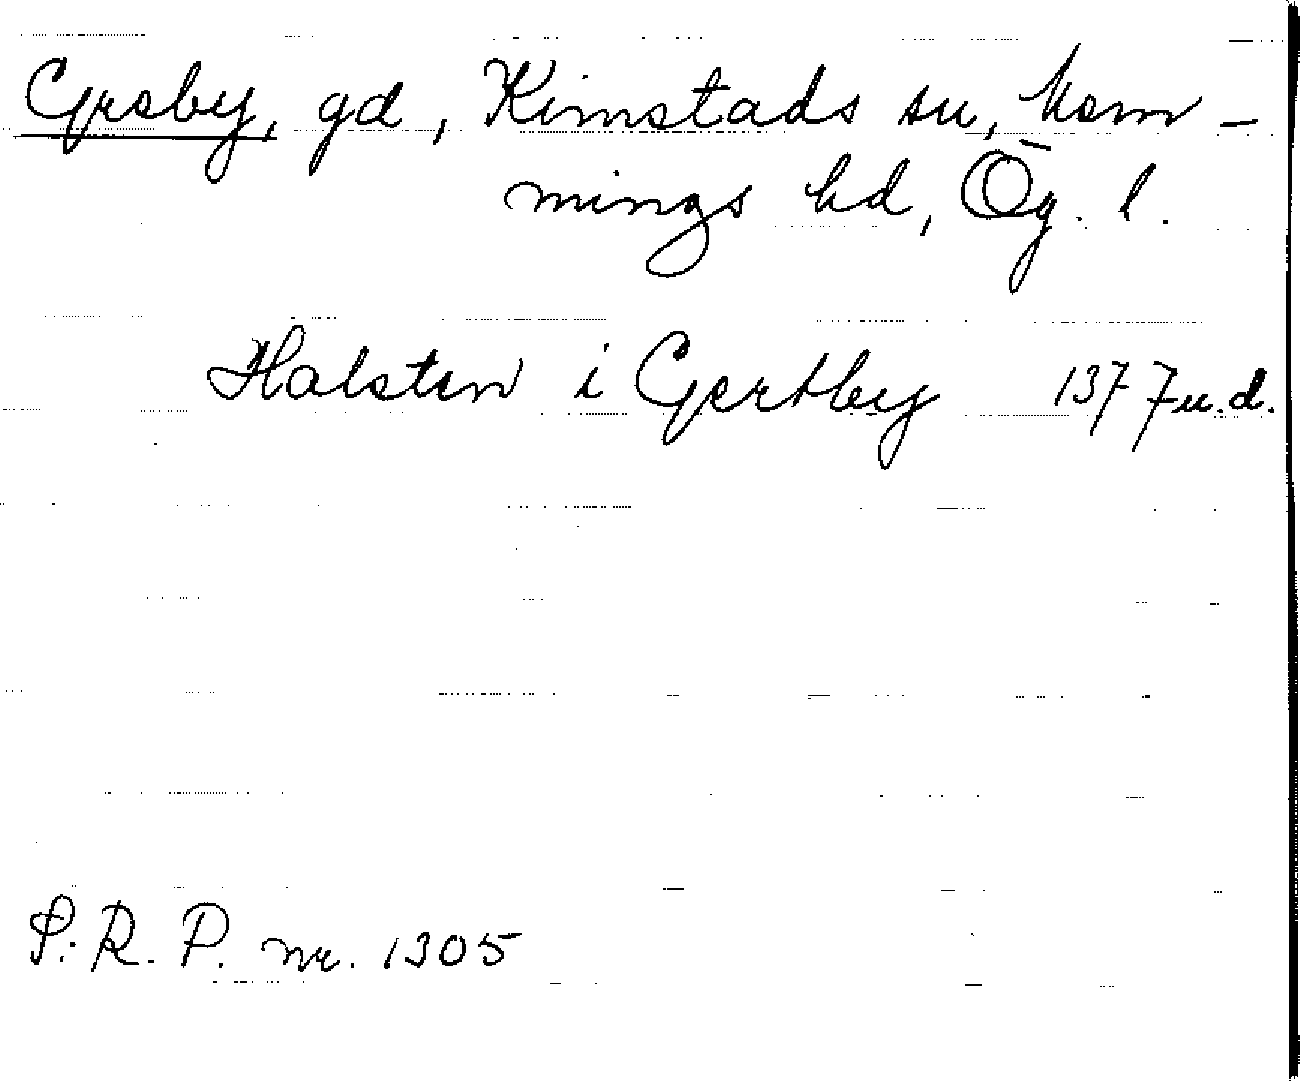 Gersby, gd, Kimstads sn, Mem-
mings hd, Ög. l.
Halsten i Gertby 1377 u.d.
S. R. P. nr. 1305